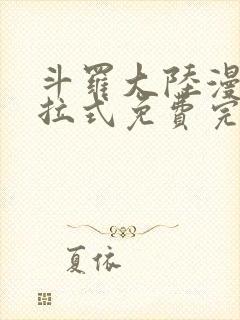 斗羅大陸漫
拉式免費完
夏依